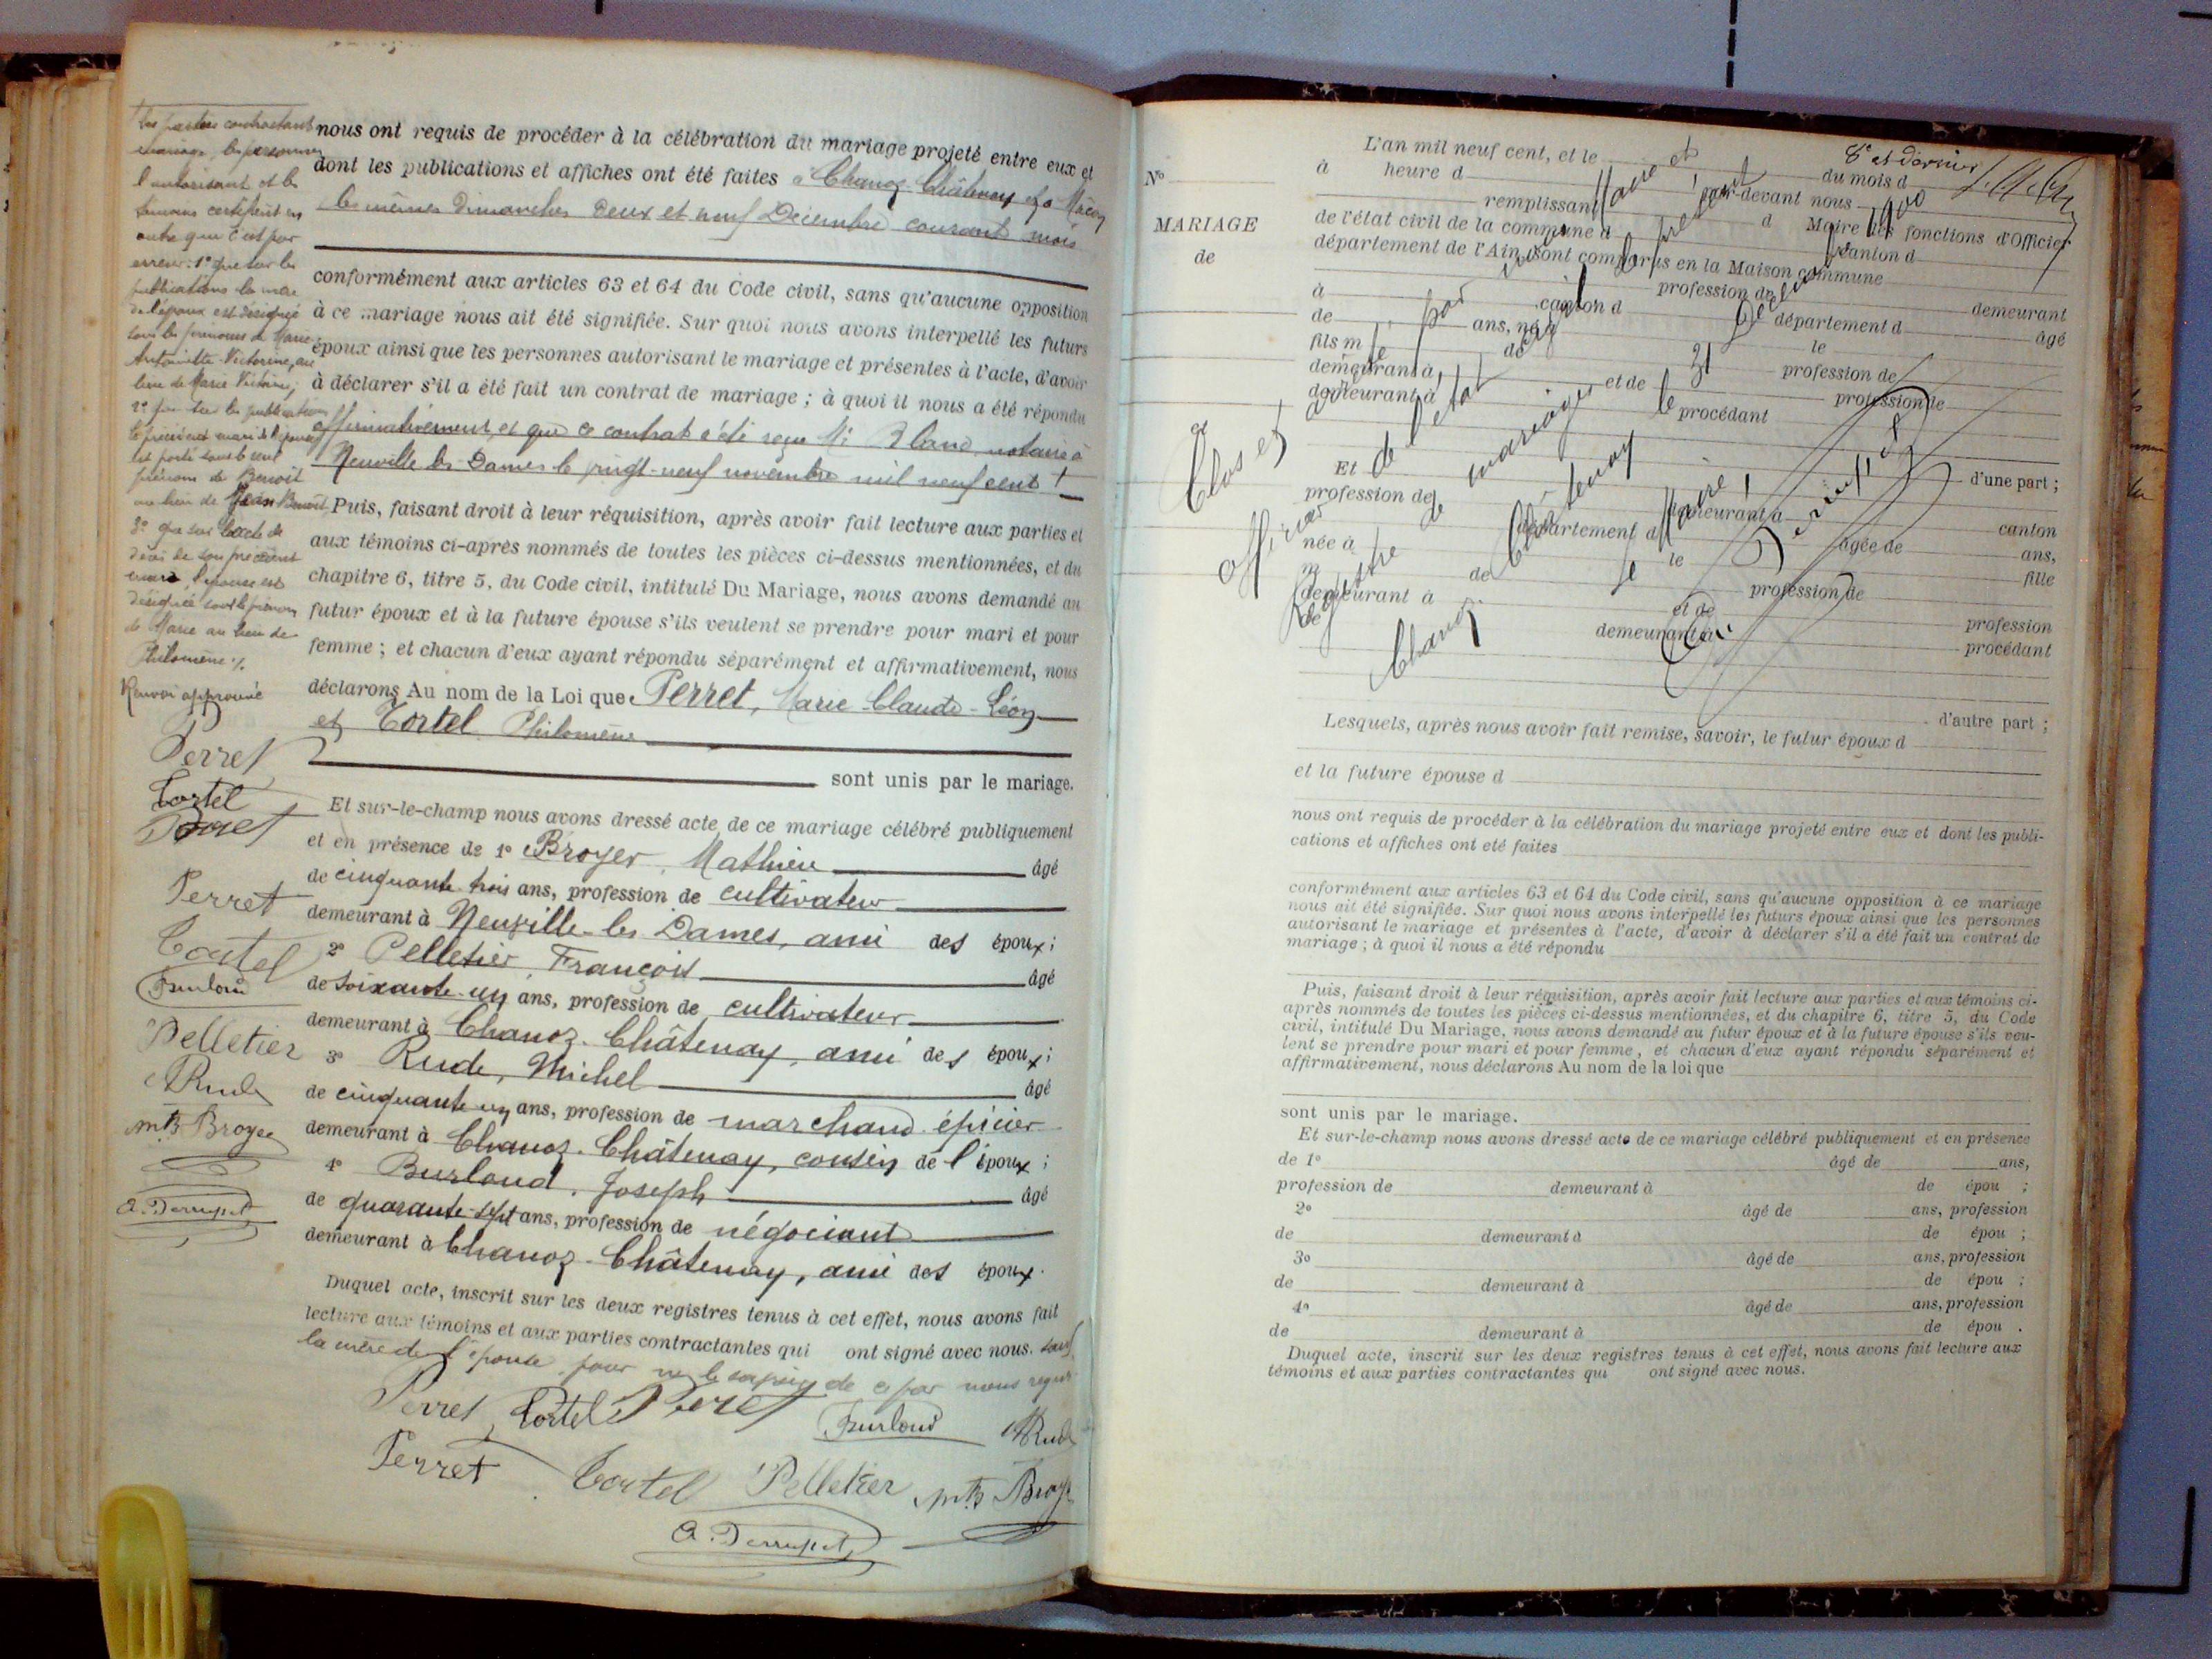 Les parties contractantes
au mariage, les personnes
l'autorisant et les
témoins certifient en
outre que c'est par
erreur : 1° que sur les
publications la mère
de l'époux est désignée
sous les prénoms de Marie
Antoinette Victorine, au
lieu de Marie Victorine ;
2° que sur les publications
le précédent mari de l'épouse
est porté sous le seul
prénom de Benoît
au lieu de Jean Benoît,
3° que sur l'acte de
décès de son précédent
mari, l'épouse est
désignée sous le prénom
de Marie au lieu de
Philomène ./.
Renvoi approuvé
Perret
Tortel
Peret
Perret
Tortel
Burloud
Pelletier
MRude
mth Broyer
A. Derrupet
nous ont requis de procéder à la célébration du mariage projeté entre eux et
dont les publications et affiches ont été faites à Chanoz-Châtenay et à Mâcon
les mêmes dimanches deux et neuf Décembre courant mois
conformément aux articles 63 et 64 du Code civil, sans qu'aucune opposition
à ce mariage nous ait été signifiée. Sur quoi nous avons interpellé les futurs
époux ainsi que les personnes autorisant le mariage et présentes à l'acte, d'avoir
à déclarer s'il a été fait un contrat de mariage ; à quoi il nous a été répondu
affirmativement, et que ce contrat a été reçu Me Blanc, notaire à
Neuville les Dames le vingt-neuf novembre mil neuf cent
Puis, faisant droit à leur réquisition, après avoir fait lecture aux parties et
aux témoins ci-après nommés de toutes les pièces ci-dessus mentionnées, et du
chapitre 6, titre 5, du Code civil, intitulé Du Mariage, nous avons demandé au
futur époux et à la future épouse s'ils veulent se prendre pour mari et pour
femme ; et chacun d'eux ayant répondu séparément et affirmativement, nous
déclarons Au nom de la Loi que Perret, Marie-Claude-Léon
et Tortel Philomène
sont unis par le mariage.
Et sur-le-champ nous avons dressé acte de ce mariage célébré publiquement
et en présence de 1° Broyer, Mathieu âgé
de cinquante-trois ans, profession de cultivateur
demeurant à Neuville-les-Dames, ami des époux ;
2° Pelletier, François âgé
de soixante-un ans, profession de cultivateur
demeurant à Chanoz-Châtenay, ami des époux ;
3° Rude, Michel âgé
de cinquante-un ans, profession de marchand épicier
demeurant à Chanoz-Châtenay, cousin de l'époux ;
4° Burloud, Joseph âgé
de quarante-sept ans, profession de négociant
demeurant à Chanoz-Châtenay, ami des époux.
Duquel acte, inscrit sur les deux registres tenus à cet effet, nous avons fait
lecture aux témoins et aux parties contractantes qui ont signé avec nous. sauf
la mère de l'épouse pour ne le savoir de ce par nous requise
Perret Tortel Peret Burloud MRude
Perret Tortel Pelletier mth Broyer
A. Derrupet
N°
MARIAGE
de
L'an mil neuf cent, et le du mois d
à heure d par-devant nous
remplissant d Maire les fonctions d'Officier
de l'état civil de la commune d canton d
département de l'Ain, sont comparus en la Maison commune
profession de demeurant
à canton d département d âgé
de ans, né à le
fils m de profession de
demeurant à et de profession de
demeurant à procédant
d'une part ;
Et
profession de demeurant à canton
département d âgée de ans,
née à le fille
m de profession de
demeurant à et de profession
de demeurant à procédant
d'autre part ;
Clos et
par
Officier de l'état
Registre de mariages
Chanoz Châtenay le 31
Le Maire,
Derrupet
Lesquels, après nous avoir fait remise, savoir, le futur époux d
et la future épouse d
nous ont requis de procéder à la célébration du mariage projeté entre eux et dont les publi-
cations et affiches ont été faites
conformément aux articles 63 et 64 du Code civil, sans qu'aucune opposition à ce mariage
nous ait été signifiée. Sur quoi nous avons interpellé les futurs époux ainsi que les personnes
autorisant le mariage et présentes à l'acte, d'avoir à déclarer s'il a été fait un contrat de
mariage ; à quoi il nous a été répondu
Puis, faisant droit à leur réquisition, après avoir fait lecture aux parties et aux témoins ci-
après nommés de toutes les pièces ci-dessus mentionnées, et du chapitre 6, titre 5, du Code
civil, intitulé Du Mariage, nous avons demandé au futur époux et à la future épouse s'ils veu-
lent se prendre pour mari et pour femme, et chacun d'eux ayant répondu séparément et
affirmativement, nous déclarons Au nom de la loi que
sont unis par le mariage.
Et sur-le-champ nous avons dressé acte de ce mariage célébré publiquement et en présence
de 1° âgé de ans,
profession de demeurant à de épou ;
2° âgé de ans, profession
de demeurant à de épou ;
3° âgé de ans, profession
de demeurant à de épou ;
4° âgé de ans, profession
de demeurant à de épou .
Duquel acte, inscrit sur les deux registres tenus à cet effet, nous avons fait lecture aux
témoins et aux parties contractantes qui ont signé avec nous.